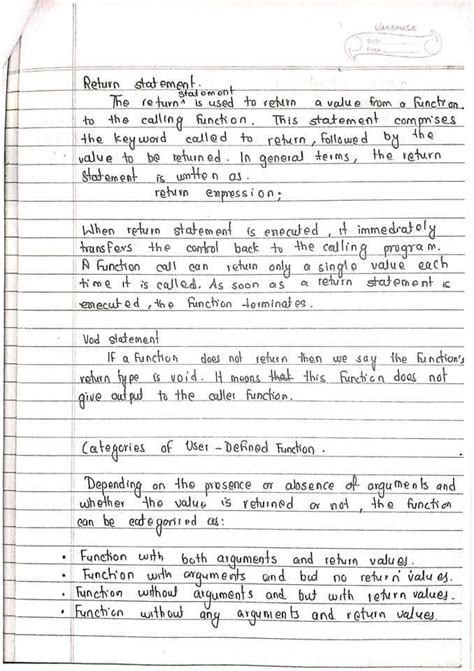 Return statement.
statement
The return ^ is used to return a value from a function.
to the calling function. This statement comprises
the keyword called to return, followed by the
value to be returned. In general terms, the return
statement is written as
return expression;
When return statement is executed, it immediately
transfers the control back to the calling program.
A function call can return only a single value each
time it is called. As soon as a return statement is
executed, the function terminates.
Void statement
If a function does not return then we say the function's
return type is void. It means that this function does not
give output to the caller function.
Categories of User-Defined Function.
Depending on the presence or absence of arguments and
whether the value is returned or not, the function
can be categorized as:
• Function with both arguments and return values.
• Function with arguments and but no return values.
• Function without arguments and but with return values.
• Function without any arguments and return values.